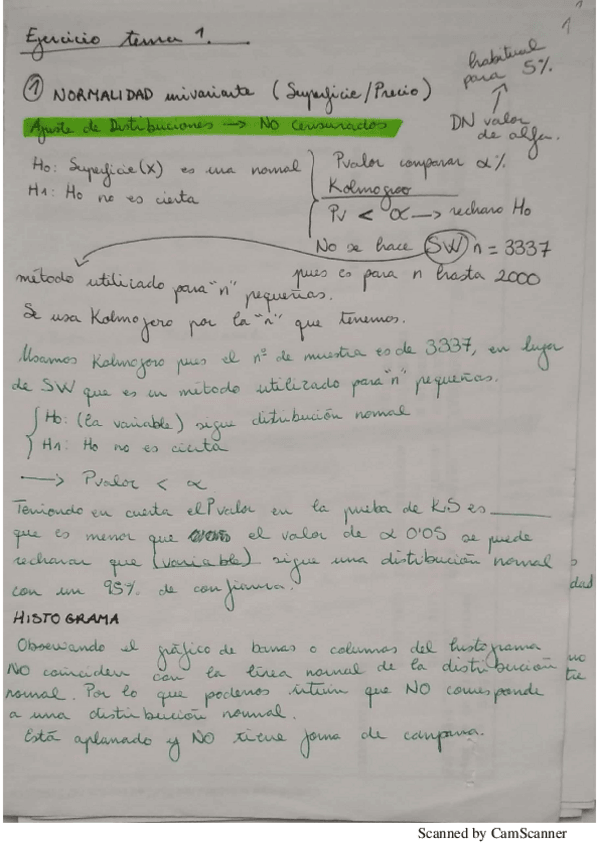 1
Ejercicio tema 1.
habitual
para 5%
① NORMALIDAD univariante (Superficie/Precio)
Ajuste de Distribuciones → NO Censurados
DN valor
de alfa.
H0: Superficie (x) es una normal
H1: H0 no es cierta
Pvalor comparar α%
Kolmogoro
Pv < α → rechazo H0
No se hace SW n = 3337
pues es para n hasta 2000
método utilizado para "n" pequeñas.
Se usa Kolmogoro por la "n" que tenemos.
Usamos Kolmogoro pues el nº de muestra es de 3337, en lugar
de SW que es un método utilizado para "n" pequeñas.
H0: (la variable) sigue distribución normal
H1: H0 no es cierta
→ Pvalor < α
Teniendo en cuenta el Pvalor en la prueba de K.S es ______
que es menor que el valor de α 0'05 se puede
rechazar que (variable) sigue una distribución normal
con un 95% de confianza.
dad
HISTOGRAMA
Observando el gráfico de barras o columnas del histograma
NO coinciden con la línea normal de la distribución
normal. Por lo que podemos intuir que NO corresponde
a una distribución normal.
Está aplanado y NO tiene forma de campana.
Scanned by CamScanner